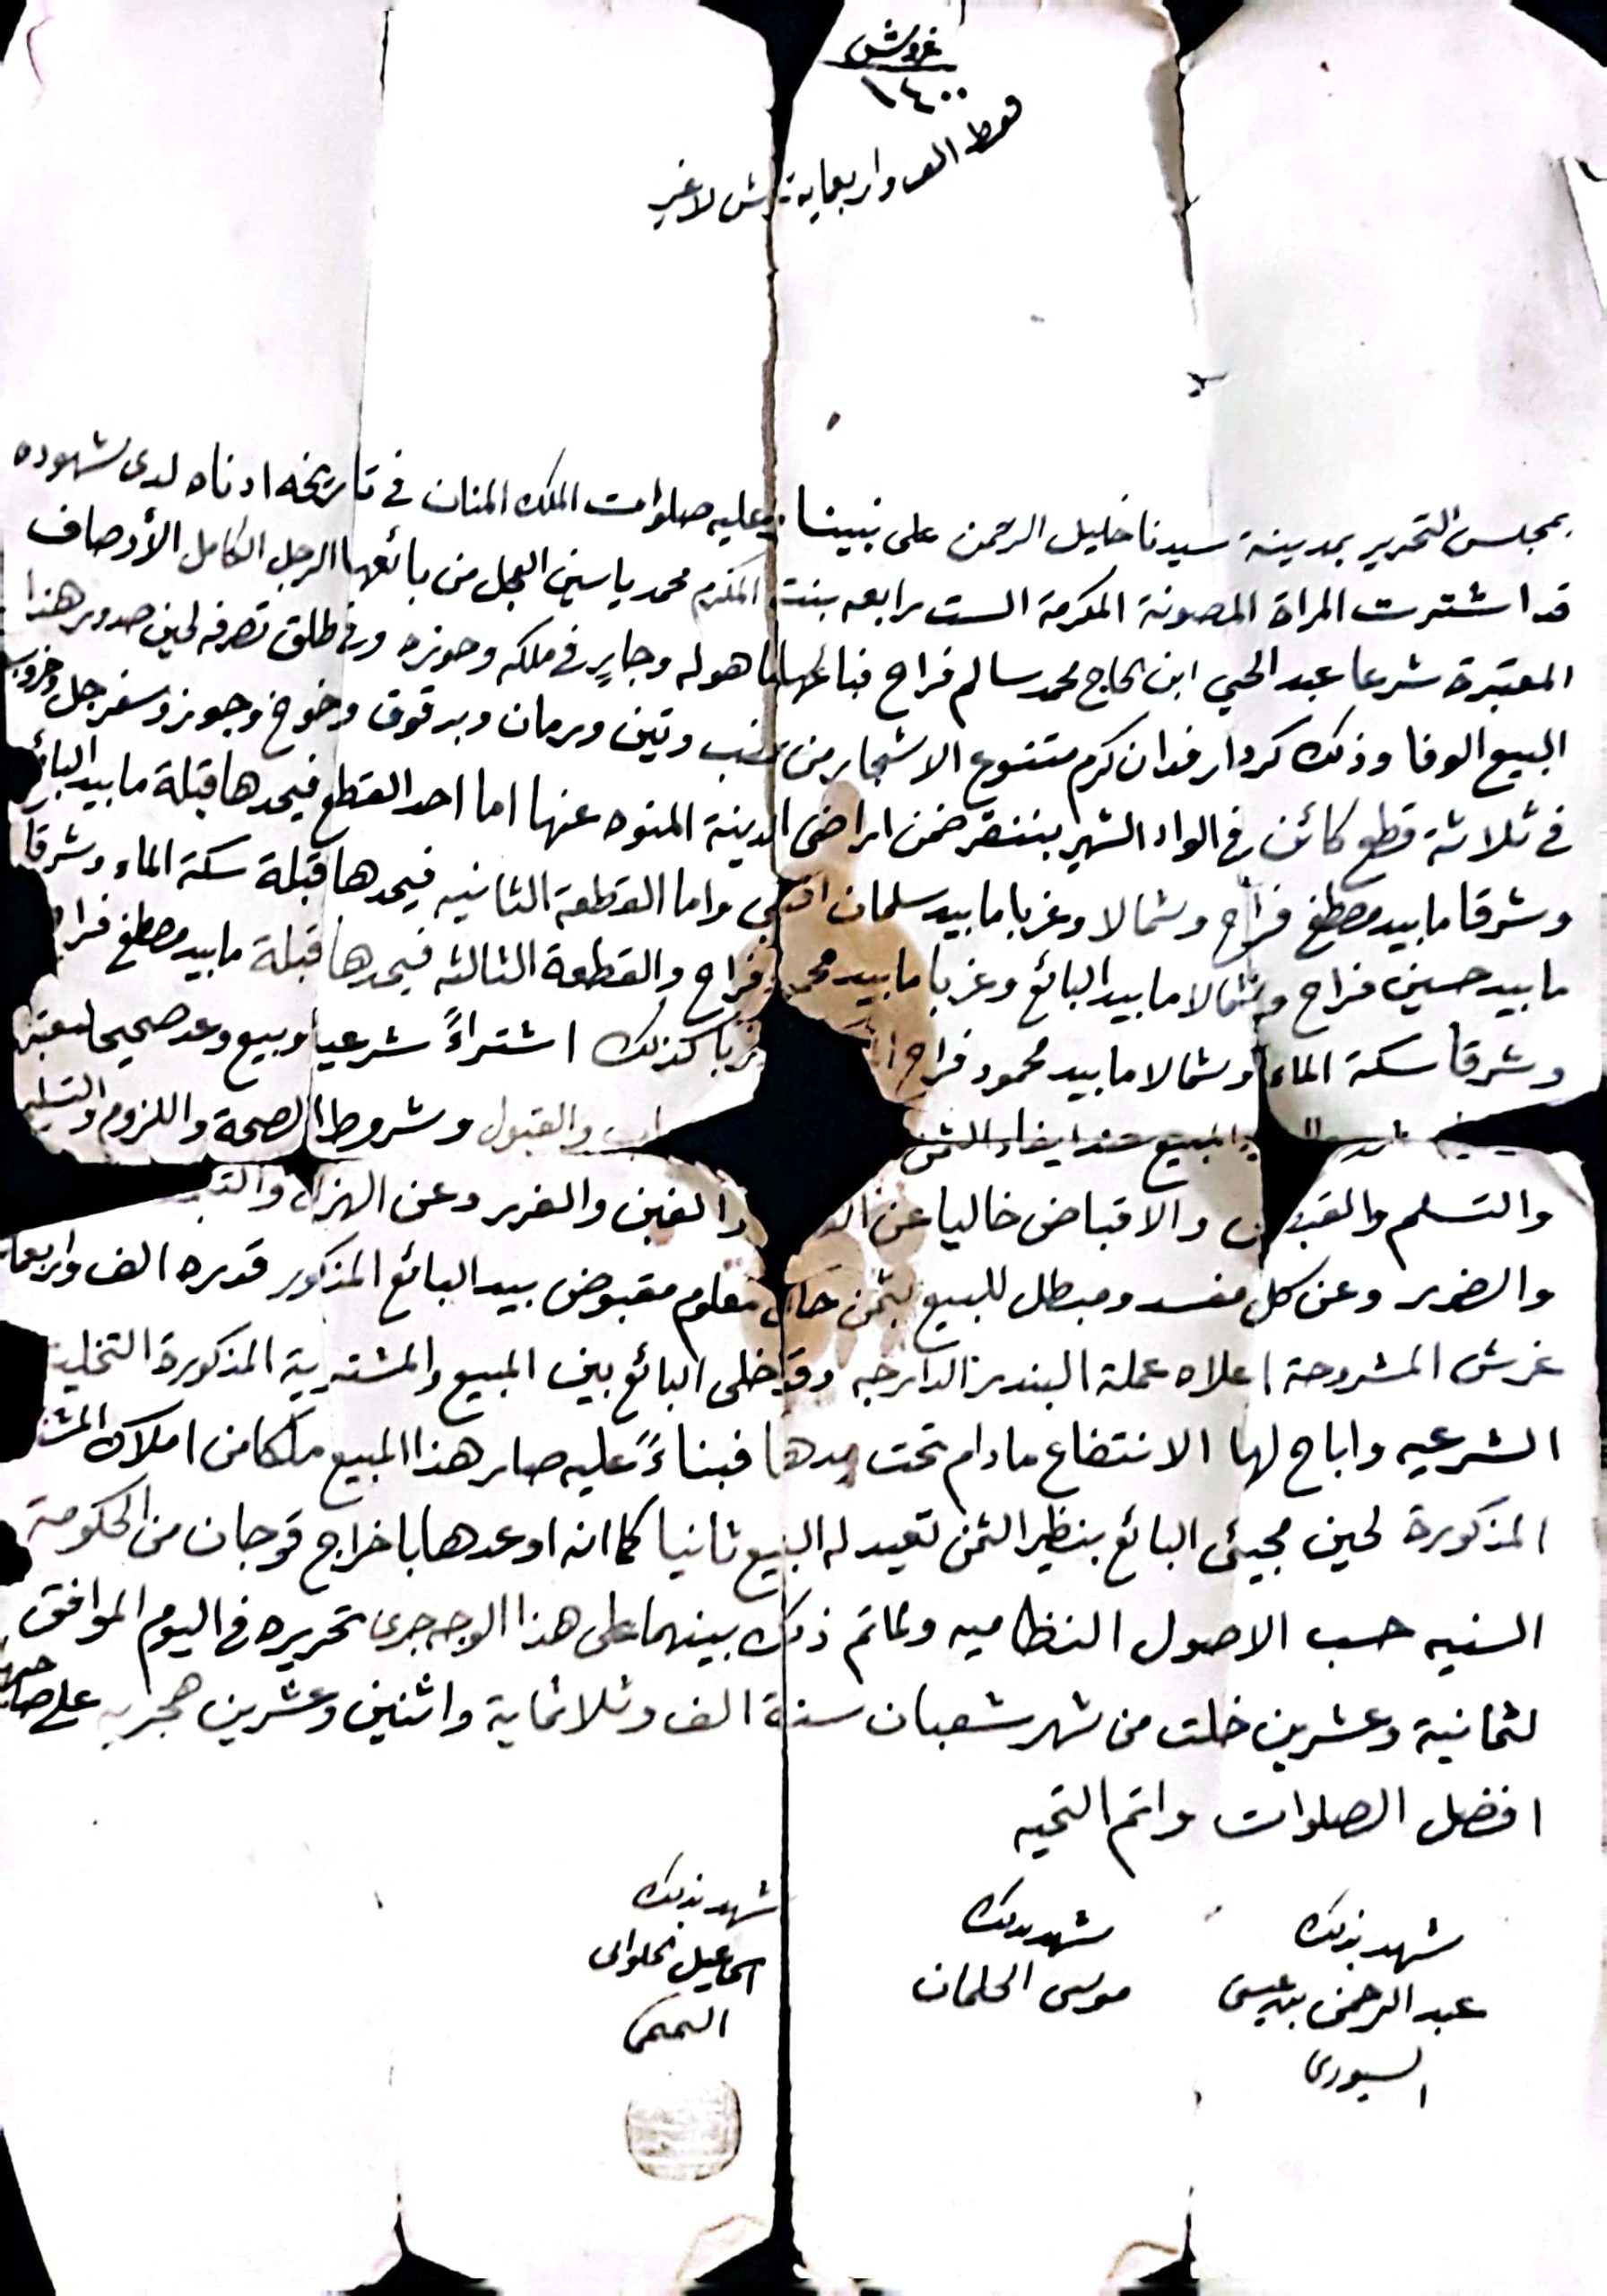 غروش
١٤٠٠
فقط الف واربعماية غرش لاغير
بمجلس التحرير بمدينة سيدنا خليل الرحمن على نبينا وعليه صلوات الملك المنان في تاريخه ادناه لدى شهوده
قد اشترت المراة المصونة المكرمة الست رابعه بنت المكرم محمد ياسين العجل من بائعها الرجل الكامل الأوصاف
المعتبرة شرعا عبد الحي ابن الحاج محمد سالم فراح فباعها ما هو له وجاير في ملكه وحوزه وفي طلق تصرفه لحين صدور هذا
البيع الوفا وذلك كردار فدان كرم متنوع الاشجار من عنب وتين ورمان وبرقوق وخوخ وجوز وسفرجل وخروب
في ثلاثة قطع كائن في الواد الشهير بننقر ضمن اراضي المدينة المنوه عنها اما احد القطع فيحدها قبلة ما بيد البائع
وشرقا ما بيد مصطفى فراح وشمالا وغربا ما بيد سلمان واما القطعة الثانيه فيحدها قبلة سكة الماء وشرقا
ما بيد حسين فراح وشمالا ما بيد البائع وغربا ما بيد محمد فراح والقطعة الثالثه فيحدها قبلة ما بيد مصطفى فراح
وشرقا سكة الماء وشمالا ما بيد محمود فراح وغربا كذلك اشتراءً شرعيا وبيع وعد صحيحا
المبيع عند ايفاء الثمن والقبول وشروط الصحة واللزوم والتسليم
والتسلم والقبض والاقباض خاليا عن والغبن والغرر وعن الهزال
والضرر وعن كل مفسد ومبطل للبيع بثمن حال معلوم مقبوض بيد البائع المذكور قدره الف واربعماية
غرش المشروحة اعلاه عملة البندر الدارجه وقد خلى البائع بين المبيع والمشترية المذكورة التخلية
الشرعيه واباح لها الانتفاع ما دام تحت يدها فبناءً عليه صار هذا المبيع ملكا من املاك المشترية
المذكورة لحين مجيئ البائع بنظير الثمن تعيد له البيع ثانيا كما انه اوعدها باخراج قوجان من الحكومة
السنيه حسب الاصول النظاميه ولما تم ذلك بينهما على هذا الوجه جرى تحريره في اليوم الموافق
لثمانية وعشرين خلت من شهر شعبان سنة الف وثلاثماية واثنين وعشرين هجريه على صاحبها
افضل الصلوات واتم التحيه
شهد بذلك
عبد الرحمن بن عيسى
السيوري
شهد بذلك
موسى الحلمان
شهد بذلك
اسماعيل